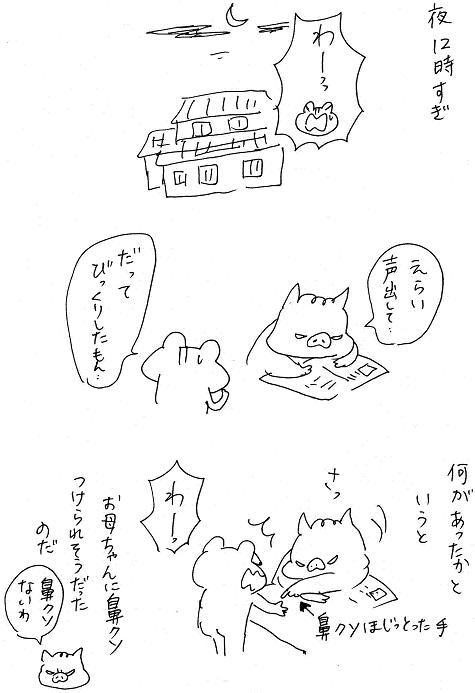 夜12時すぎ
わーっ
えらい
声出して…
だって
びっくりしたもん…
何があったかと
いうと
さっ
鼻クソほじっとった手
わーっ
お母ちゃんに鼻クソ
つけられそうだった
のだ
鼻クソ
ないわ